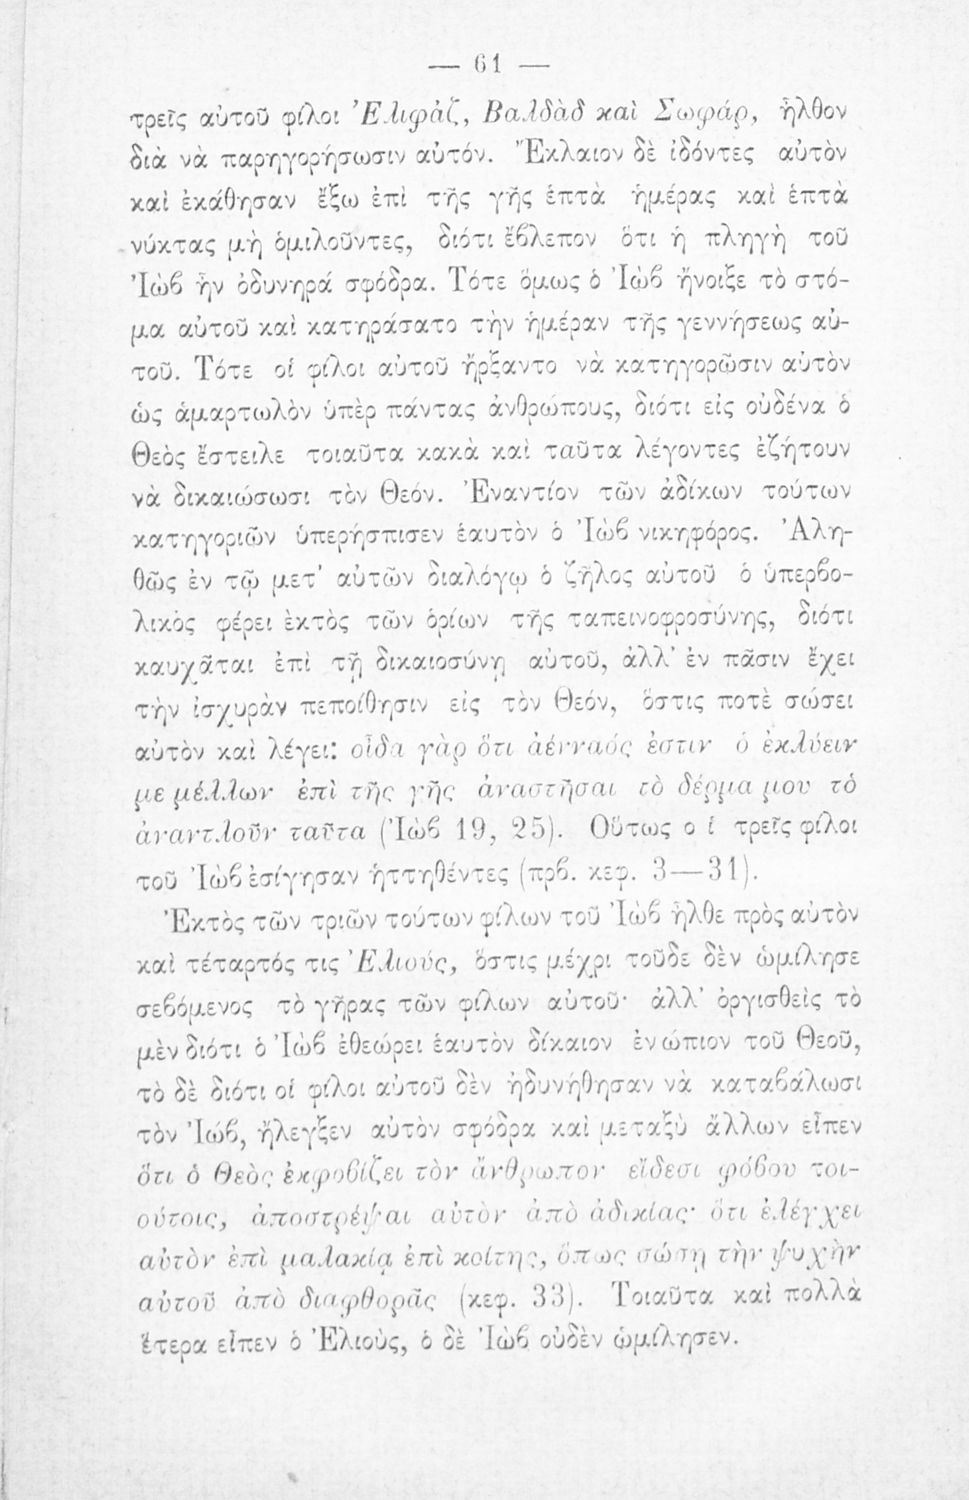 — 61 —
τρεῖς αὐτοῦ φίλοι Ἐλιφὰζ, Βαλδὰδ καὶ Σωφάρ, ἦλθον
διὰ νὰ παρηγορήσωσιν αὐτόν. Ἔκλαιον δὲ ἰδόντες αὐτὸν
καὶ ἐκάθησαν ἔξω ἐπὶ τῆς γῆς ἑπτὰ ἡμέρας καὶ ἑπτὰ
νύκτας μὴ ὁμιλοῦντες, διότι ἔβλεπον ὅτι ἡ πληγὴ τοῦ
Ἰὼβ ἦν ὀδυνηρά σφόδρα. Τότε ὅμως ὁ Ἰὼβ ἤνοιξε τὸ στό-
μα αὐτοῦ καὶ κατηράσατο τὴν ἡμέραν τῆς γεννήσεως αὐ-
τοῦ. Τότε οἱ φίλοι αὐτοῦ ἤρξαντο νὰ κατηγορῶσιν αὐτὸν
ὡς ἁμαρτωλὸν ὑπὲρ πάντας ἀνθρώπους, διότι εἰς οὐδένα ὁ
Θεὸς ἔστειλε τοιαῦτα κακὰ καὶ ταῦτα λέγοντες ἐζήτουν
νὰ δικαιώσωσι τὸν Θεόν. Ἐναντίον τῶν ἀδίκων τούτων
κατηγοριῶν ὑπερήσπισεν ἑαυτὸν ὁ Ἰὼβ νικηφόρος. Ἀλη-
θῶς ἐν τῷ μετ' αὐτῶν διαλόγῳ ὁ ζῆλος αὐτοῦ ὁ ὑπερβο-
λικὸς φέρει ἐκτὸς τῶν ὁρίων τῆς ταπεινοφροσύνης, διότι
καυχᾶται ἐπὶ τῇ δικαιοσύνῃ αὐτοῦ, ἀλλ' ἐν πᾶσιν ἔχει
τὴν ἰσχυρὰν πεποίθησιν εἰς τὸν Θεόν, ὅστις ποτὲ σώσει
αὐτὸν καὶ λέγει: οἶδα γὰρ ὅτι ἀένναός ἐστιν ὁ ἐκλύειν
με μέλλων ἐπὶ τῆς γῆς ἀναστῆσαι τὸ δέρμα μου τὸ
ἀναντλοῦν ταῦτα (Ἰὼβ 19, 25). Οὕτως ο ἱ τρεῖς φίλοι
τοῦ Ἰὼβ ἐσίγησαν ἡττηθέντες (πρβ. κεφ. 3—31).
Ἐκτὸς τῶν τριῶν τούτων φίλων τοῦ Ἰὼβ ἦλθε πρὸς αὐτὸν
καὶ τέταρτός τις Ἐλιούς, ὅστις μέχρι τοῦδε δὲν ὡμίλησε
σεβόμενος τὸ γῆρας τῶν φίλων αὐτοῦ· ἀλλ' ὀργισθεὶς τὸ
μὲν διότι ὁ Ἰὼβ ἐθεώρει ἑαυτὸν δίκαιον ἐνώπιον τοῦ Θεοῦ,
τὸ δὲ διότι οἱ φίλοι αὐτοῦ δὲν ἠδυνήθησαν νὰ καταβάλωσι
τὸν Ἰώβ, ἤλεγξεν αὐτὸν σφόδρα καὶ μεταξὺ ἄλλων εἶπεν
ὅτι ὁ Θεὸς ἐκφοβίζει τὸν ἄνθρωπον εἴδεσι φόβου τοι-
ούτοις, ἀποστρέψαι αὐτὸν ἀπὸ ἀδικίας· ὅτι ἐλέγχει
αὐτὸν ἐπὶ μαλακίᾳ ἐπὶ κοίτης, ὅπως σώσῃ τὴν ψυχὴν
αὐτοῦ ἀπὸ διαφθορᾶς (κεφ. 33). Τοιαῦτα καὶ πολλὰ
ἕτερα εἶπεν ὁ Ἐλιοὺς, ὁ δὲ Ἰὼβ οὐδὲν ὡμίλησεν.